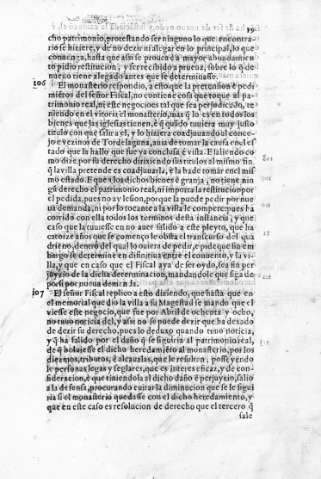 39
cho patrimonio, protestando ser ninguno lo que en contra-
rio se hiziere, y de no dezir ni alegar en lo principal, lo que
conuenga, hasta que assi se prouea a mayor abundamien-
to pidio restitucion, y ser recebido a prueua, sobre lo q̃ de
nueuo tiene alegado antes que se determinasse.
106 El monasterio respondio, a esto que la pretension è pedi-
miẽtos del señor Fiscal, no contiene cosa que toque al pa-
trimonio real, ni este negocio es tal que sea perjudicado, te-
niendo en el vitoria el monasterio, mas q̃ lo es en todos los
bienes que las yglesias tienen, è q̃ quãdo tuuiera muy justo
titulo con que salir a el, y lo hiziera coadjuuando al conce-
jo e vezinos de Tordelaguna, auia de tomar la causa en el es-
tado que la hallo que fue ya conclusa è vista. E saliendo co-
mo dize por su derecho dirixiendo sus titulos el mismo fin
q̃ la villa pretende es coadjuuarla, y ha de tomar en el mis-
mo estado. E que si los dichos bienes è granja, no tiene nin-
gũ derecho el patrimonio real, ni importa la restitucion por
el pedida, pues no ay lesion, porque la puede pedir por nue
ua demanda, ni por lo tocante a la villa le compete pues ha
corrido con ella todos los terminos desta instancia, y que
caso que la tuuiesse en no auer salido a este pleyto, que ha
catorze años que se começò le obsta el transcurso del qua
driẽnio, dentro del qual lo vuiera de pedir, e pide que sin em
bargo se determine en difinitiua entre el conuento, y la vi-
lla, y que en caso que el Fiscal aya de ser oydo, sea sin per
juyzio de la dicha determinacion, mandandole que siga de
por si por nueua demanda.
107 El señor Fiscal replico a esto diziendo, que hasta que en
el memorial que dio la villa a su Magestad se mando que el
viesse este negocio, que fue por Abril de ochenta y ocho,
no tuuo noticia del, y assi no se puede dezir que ha dexado
de dezir su derecho, pues lo deduxo quando tuuo noticia,
y q̃ ha salido por el daño q̃ se seguiria al patrimonio real,
de q̃ boluiesse el dicho heredamiẽto al monasterio, por los
diezmos, tributos, è alcaualas, que le resultẽ, posseyendo
le personas legas y seglares, que es interes eficaz, y de con-
sideracion, è que tiniendola al dicho daño è perjuyzio, salio
a la defensa, procurando euitar la diminucion que se le segui
ria si el monasterio quedasse con el dicho heredamiento, y
que en este caso es resolucion de derecho que el tercero q̃
sale